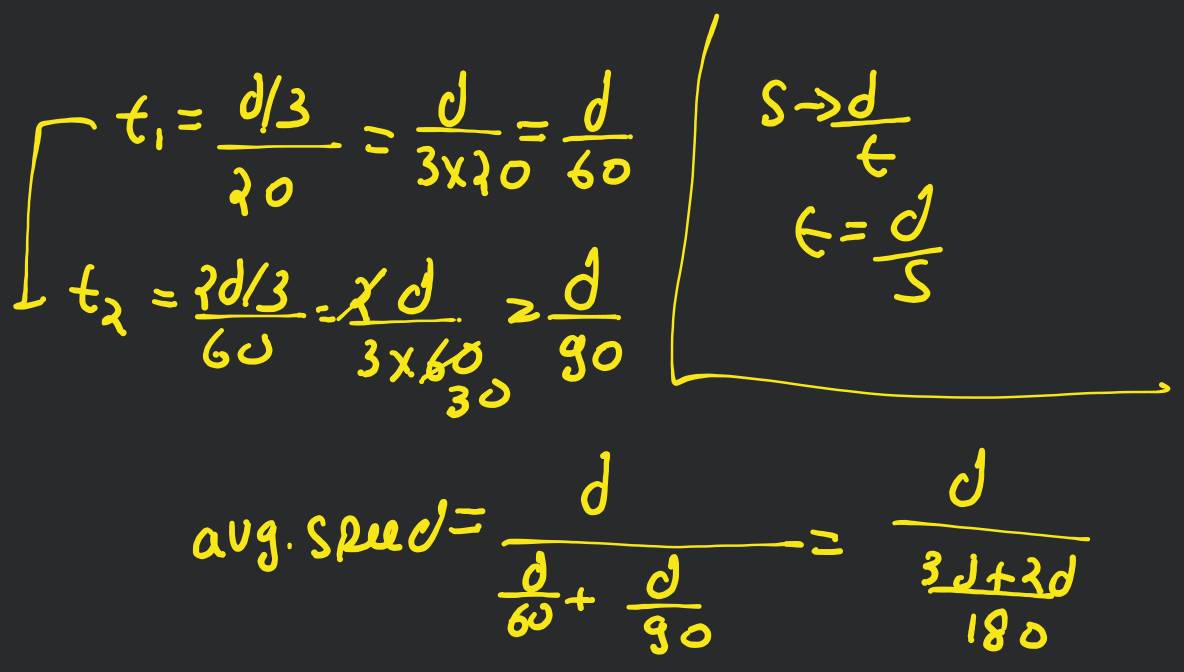 t₁ = (d/3)/20 = d/(3×20) = d/60
t₂ = (2d/3)/60 = 2d/(3×60) = d/90
30
S → d/t
t = d/S
avg. speed = d/(d/60 + d/90) = d/((3d+2d)/180)